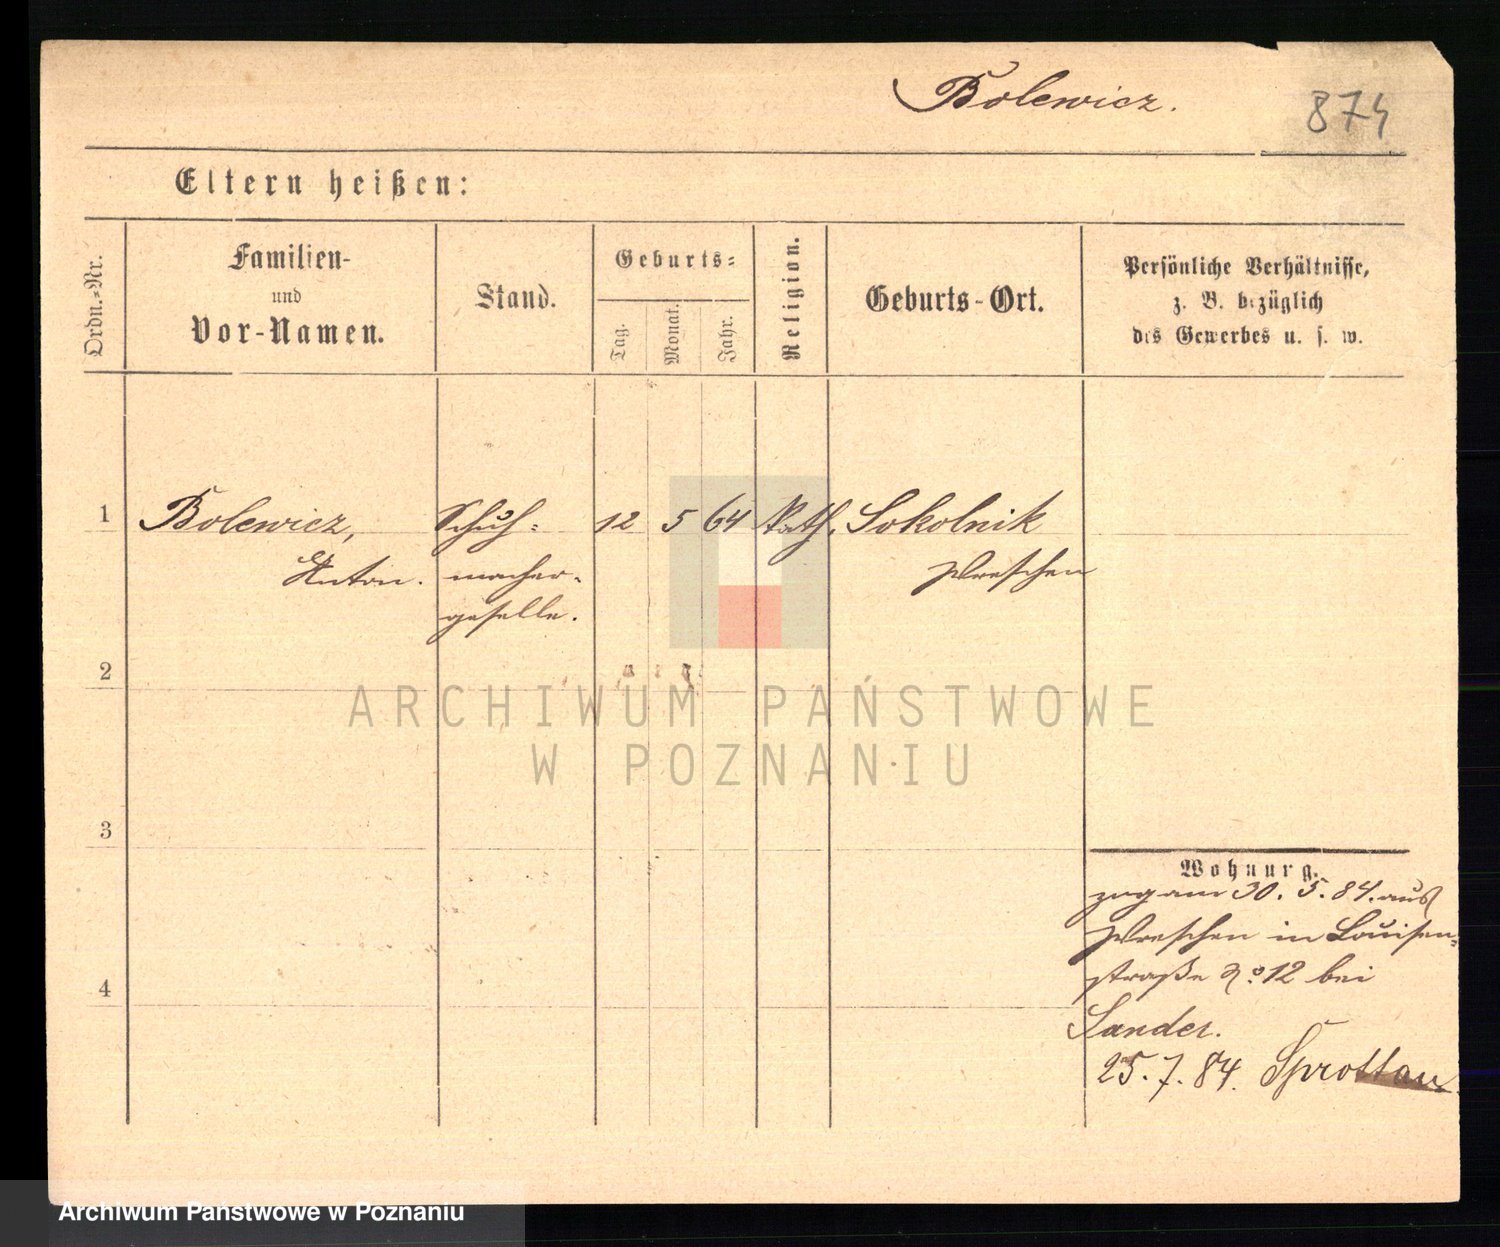 Bolewicz.
874
Eltern heißen:
Ordn.=Nr.
Familien-
und
Vor-Namen.
Stand.
Geburts=
Tag.
Monat.
Jahr.
Religion.
Geburts-Ort.
Persönliche Verhältnisse,
z. B. bezüglich
des Gewerbes u. s. w.
1
Bolewicz,
Anton.
Schuh=
macher-
geselle.
12
5
64
Kath.
Sokolnik
Wreschen
2
ARCHIWUM PAŃSTWOWE
W POZNANIU
3
4
Wohnung.
zog am 30. 5. 84. aus
Wreschen in Louisen=
straße No. 12 bei
Sander.
25. 7. 84. Sprottau
Archiwum Państwowe w Poznaniu